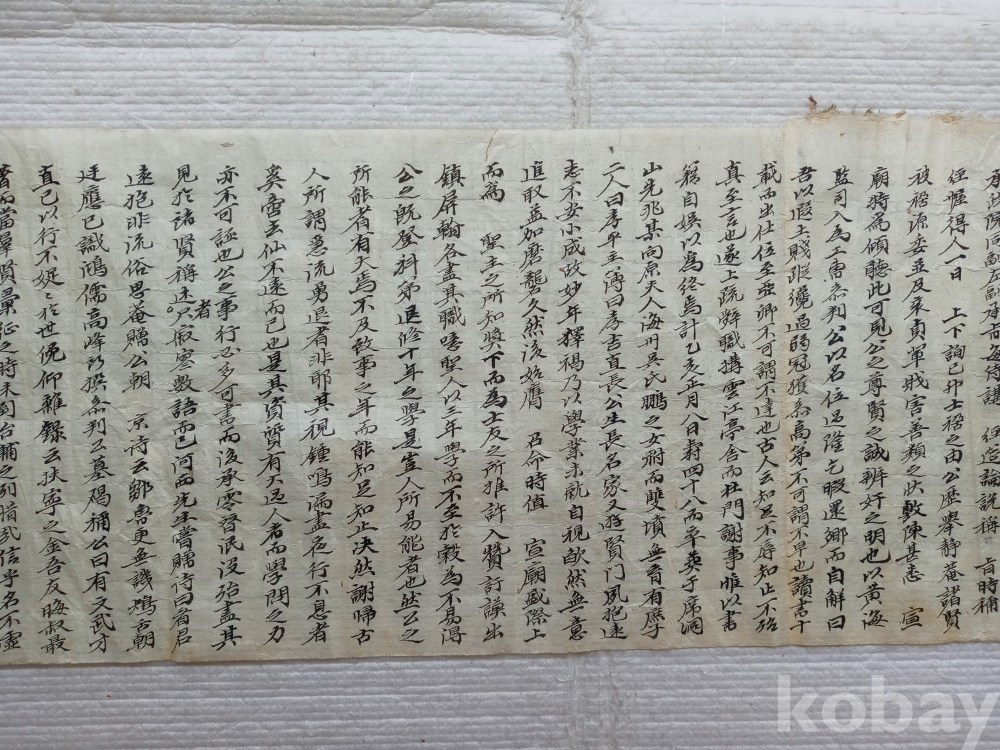 承政院同副副承旨每侍講 經筵論說稱 旨時稱
經幄得人一日 上下詢己卯士禍之由公歷擧靜菴諸賢
被禍源委並及衮貞軍戕害善類之狀敷陳甚悉 宣
廟時爲傾聽此可見公之尊賢之誠辨奸之明也以黃海
監司入爲工曹參判公以名位過隆乞暇還鄕而自解曰
吾以遐土賤蹤纔過弱冠獲忝高第不可謂不早也讀書十
載而出仕位至亞卿不可謂不達也古人云知足不辱知止不殆
眞至言也遂上疏辭職搆雲江亭舍而杜門謝事惟以書
籍自娛以爲終焉計乙亥正月八日壽四十八而卒葬于席洞
山先兆某向原夫人海州吳氏鵬之女祔而雙墳無育有庶子
二人曰孝平主簿曰孝吉直長公生長名家又遊賢門夙抱遠
志不安小成故妙年釋褐乃以學業未就自視歉然無意
進取益加磨礱久然後始膺 召命時値 宣廟盛際上
而爲 聖主之所知奬下而爲士友之所推許入贊訏謨出
鎭屛翰各盡其職嗟聖人以三年學而不至於穀爲不易得
公之旣登科第退修十年之學是豈人所易能者也然公之
所能者有大焉不及致事之年而能知足知止決然謝歸古
人所謂急流勇退者非耶其視鍾鳴漏盡名行不息者
奚啻去仙不遠而已也是其資質有大過人者而學問之力
亦不可誣也公之事行必多可書而後承零替泯沒殆盡其
見於諸賢稱述者只寂寥數語而已河西先生嘗贈詩曰省君
遠抱非流俗思菴贈公朝 京詩云鄒魯更無譏鴂舌朝
廷應已識鴻儒高峰所撰參判公墓碣稱公曰有文武才
直己以行不娗娗於世俛仰雜錄云扶寧之金吾友晦叔最
著而當羣賢彙征之時未到台輔之列惜哉信乎名不虛